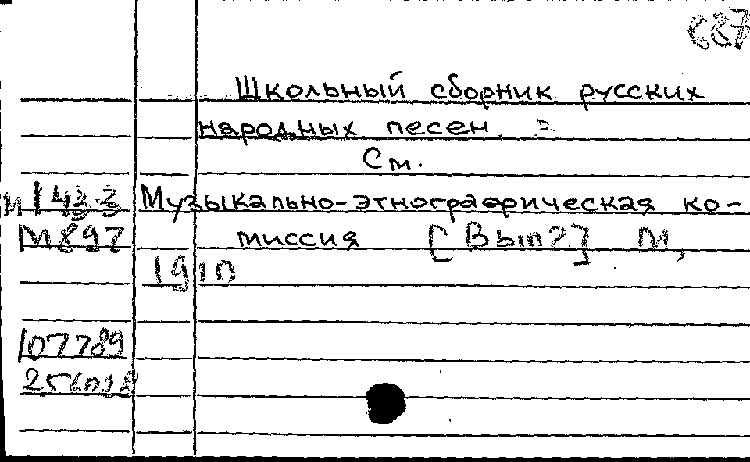 Школьный сборник русских
народных песен. =
См.
Музыкально-этнографическая ко-
миссия [Вып?] М,
1910
М897
107789